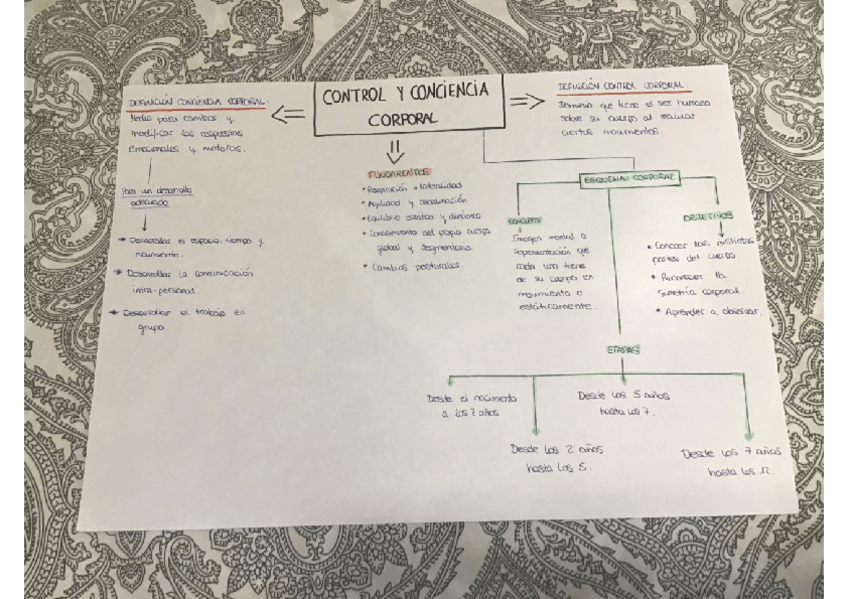 CONTROL Y CONCIENCIA
CORPORAL
DEFINICIÓN CONCIENCIA CORPORAL:
Medio para cambiar y
modificar las respuestas
emocionales y motoras.
Para un desarrollo
adecuado
Desarrollar el espacio, tiempo y
movimiento.
Desarrollar la comunicación
intra-personal.
Desarrollar el trabajo en
grupo.
FUNDAMENTOS
• Respiración • Lateralidad
• Agilidad y coordinación
• Equilibrio estático y dinámico
• Conocimiento del propio cuerpo
global y segmentaria.
• Cambios posturales.
DEFINICIÓN CONTROL CORPORAL:
Dominio que tiene el ser humano
sobre su cuerpo al realizar
ciertos movimientos.
ESQUEMA CORPORAL
CONCEPTO
Imagen mental o
representación que
cada uno tiene
de su cuerpo en
movimiento o
estáticamente.
OBJETIVOS
• Conocer las distintas
partes del cuerpo
• Reconocer la
simetría corporal.
• Aprender a observar.
ETAPAS
Desde el nacimiento
a los 2 años
Desde los 2 años
hasta los 5.
Desde los 5 años
hasta los 7.
Desde los 7 años
hasta los 12.